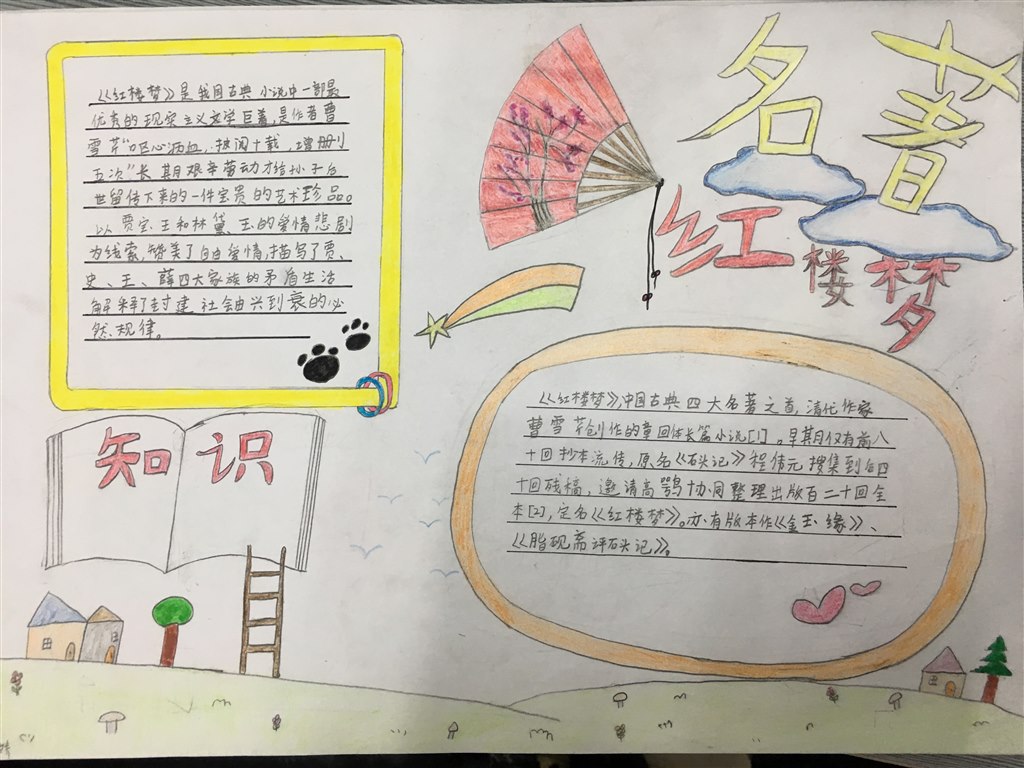 名著
红楼梦
《红楼梦》是我国古典小说中一部最
优秀的现实主义文学巨著,是作者曹
雪芹“呕心沥血,披阅十载,增册刂
五次”长期艰辛劳动才给孙子后
世留传下来的一件宝贵的艺术珍品。
以贾宝玉和林黛玉的爱情悲剧
为线索,赞美了自由爱情,描写了贾、
史、王、薛四大家族的矛盾生活
解释了封建社会由兴到衰的必
然规律。
知识
《红楼梦》,中国古典四大名著之首,清代作家
曹雪芹创作的章回体长篇小说[1]。早期仅有前八
十回抄本流传,原名《石头记》程伟元搜集到后四
十回残稿,邀请高鹗协同整理出版百二十回全
本[2],定名《红楼梦》。亦有版本作《金玉缘》、
《脂砚斋评石头记》。